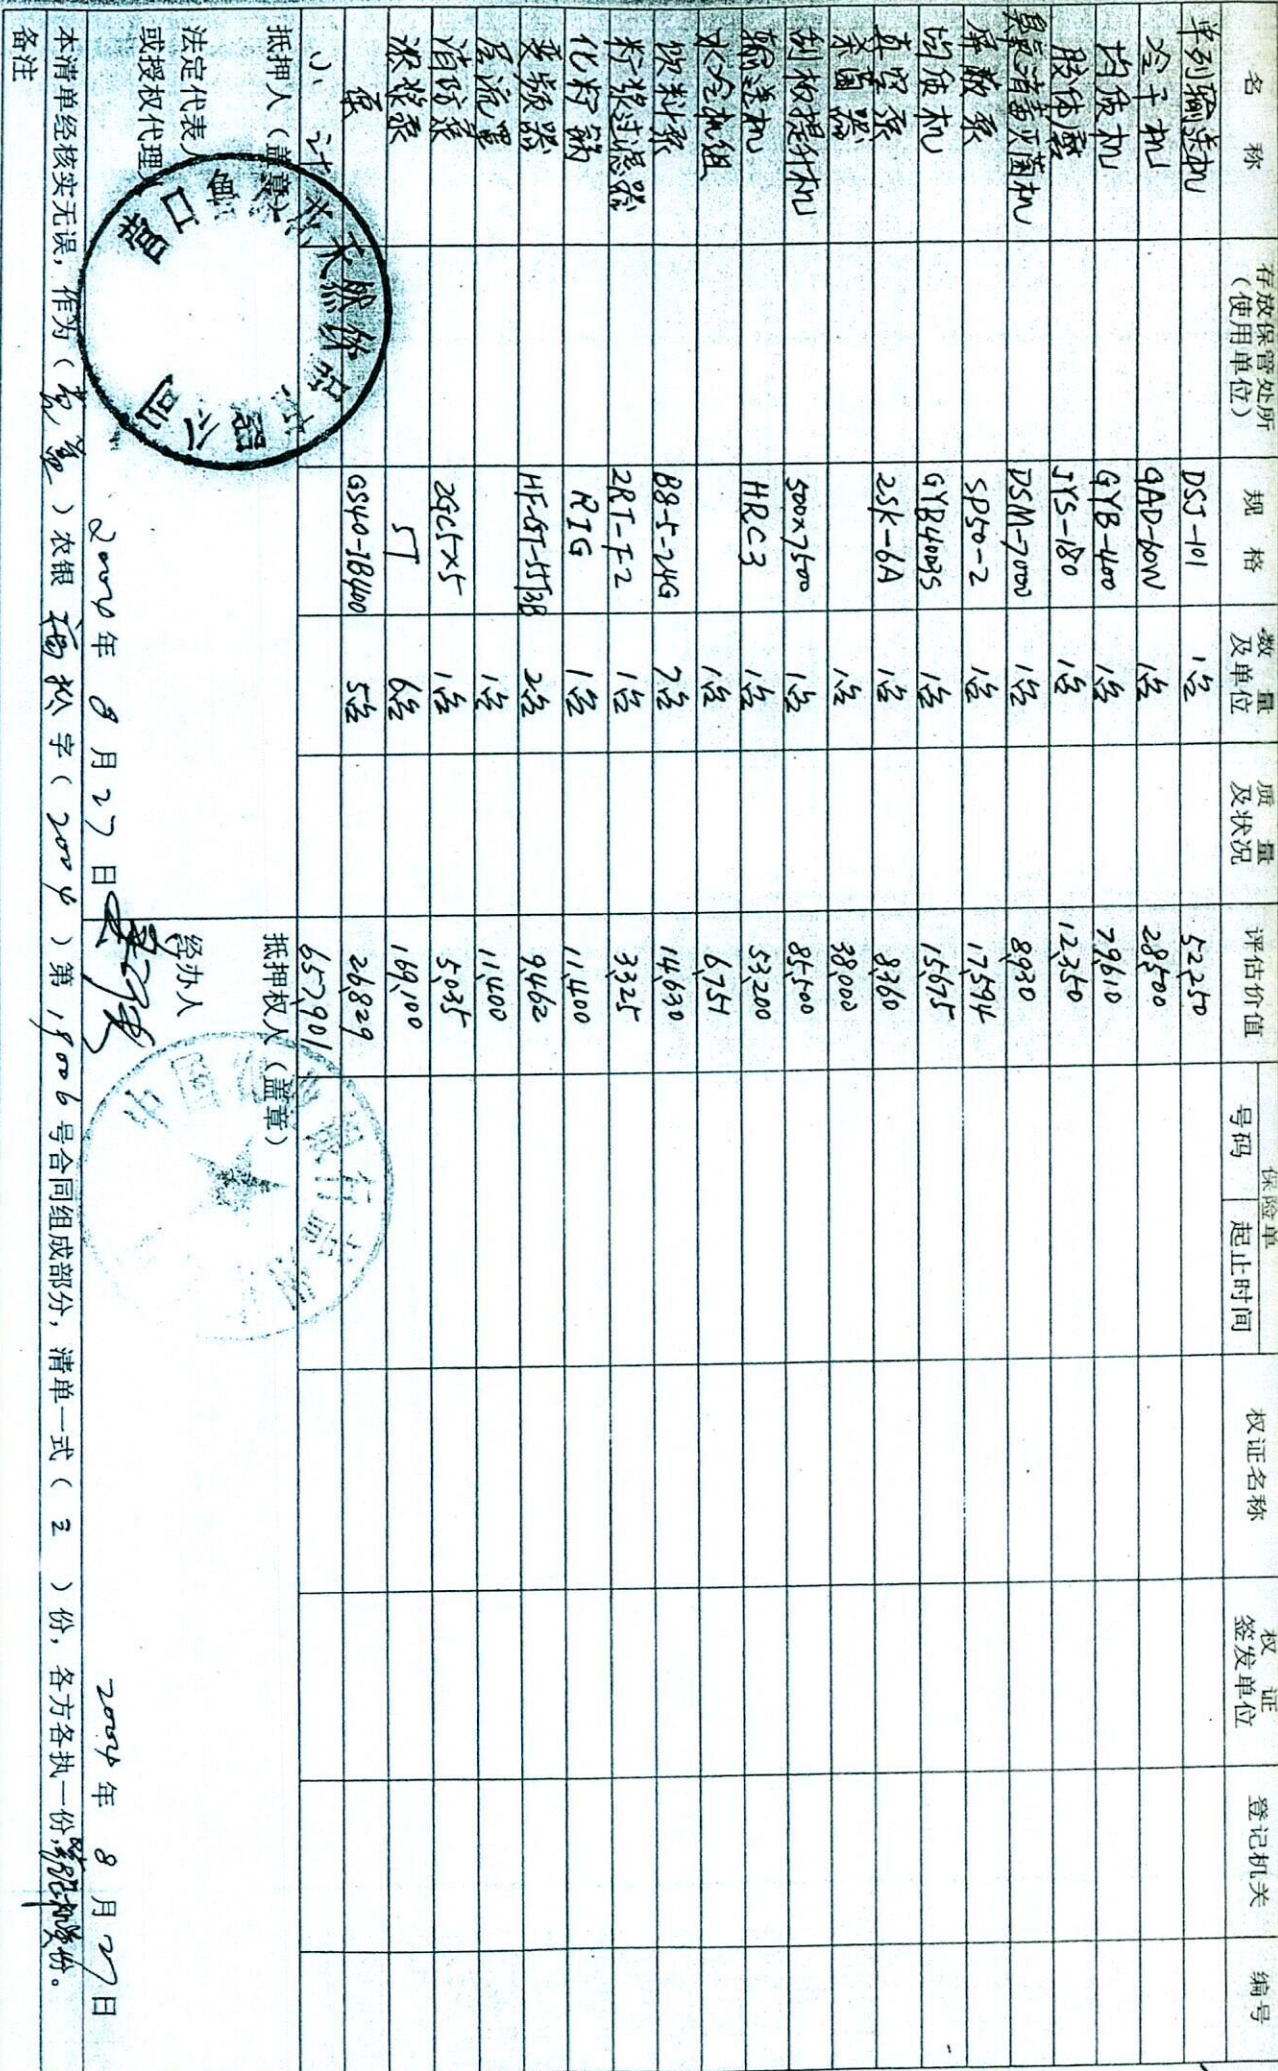 名 称 存放保管处所（使用单位） 规 格 数 量及单位 质 量及状况 评估价值 保险单 号码 起止时间 权证名称 权 证签发单位 登记机关 编号
单列输送机 DSJ-101 1台 52,250
冷干机 GAD-60W 1台 28,500
均质机 GYB-400 1台 79,610
胶体磨 JYS-180 1台 12,350
臭氧消毒灭菌机 DSM-7000 1台 8,930
屏蔽泵 SP50-2 1台 17,594
均质机 GYB400 1台 15,675
真空泵 2SK-6A 1台 8,360
杀菌器 1台 38,000
刮板提升机 500x7500 1台 85,500
输送机 HRC3 1台 53,200
水冷机组 1台 6,754
饮料泵 B8-5-24G 7台 14,630
籽浆过滤器 2RT-F-2 1台 3,325
化籽锅 R1G 1台 11,400
变频器 2台 9,462
层流罩 1台 11,400
消防泵 2GC5x5 1台 5,035
浓浆泵 5T 6台 169,100
泵 GS40-1B400 5台 26,829
小 计 657,901
抵押人（盖章） 抵押权人（盖章）
法定代表人
或授权代理人 经办人
2004年 8 月 27 日 2004年 8 月 27 日
本清单经核实无误，作为（ ）农银 字（2004）第 号合同组成部分，清单一式（ 3 ）份，各方各执一份，
备注
营口 天然 公司
中国 银行